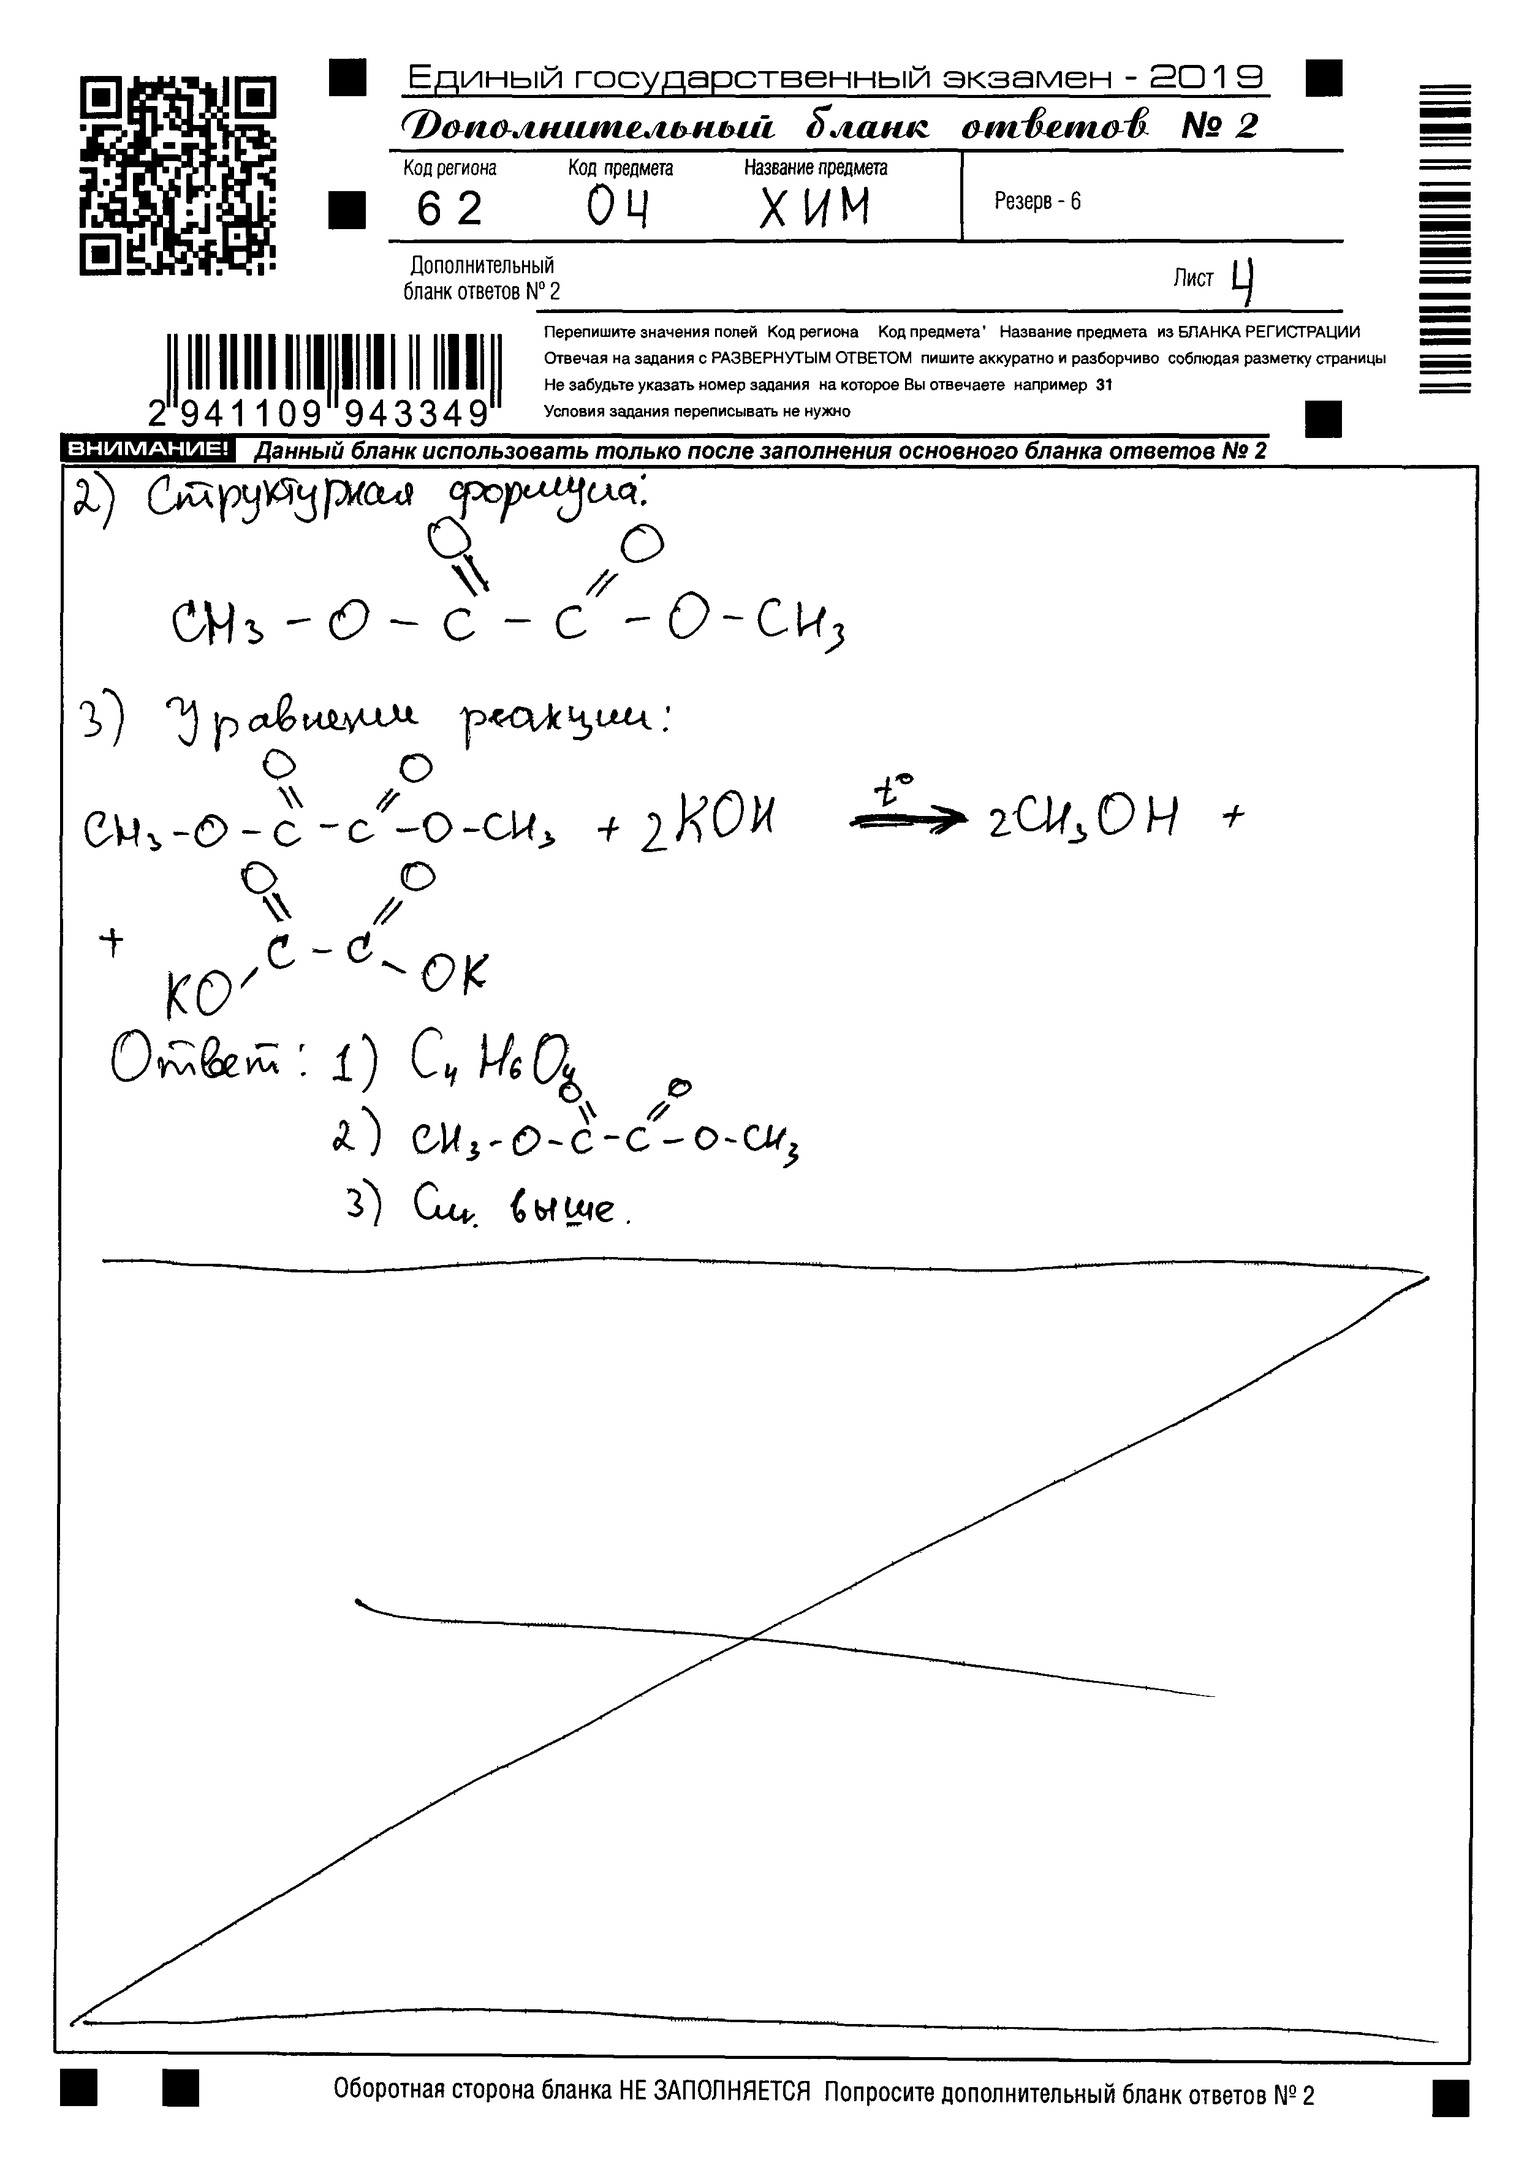 Единый государственный экзамен - 2019
Дополнительный бланк ответов № 2
Код региона Код предмета Название предмета
62 04 ХИМ
Резерв - 6
Дополнительный
бланк ответов № 2
Лист 4
Перепишите значения полей Код региона Код предмета' Название предмета из БЛАНКА РЕГИСТРАЦИИ
Отвечая на задания с РАЗВЕРНУТЫМ ОТВЕТОМ пишите аккуратно и разборчиво соблюдая разметку страницы
Не забудьте указать номер задания на которое Вы отвечаете например 31
Условия задания переписывать не нужно
2 941109 943349
ВНИМАНИЕ! Данный бланк использовать только после заполнения основного бланка ответов № 2
2) Структурная формула:
O O
CH3 - O - C - C - O - CH3
3) Уравнении реакции:
O O
CH3-O-C-C-O-CH3 + 2KOH t° → 2CH3OH +
O O
+ KO C - C OK
Ответ: 1) C4H6O4
O O
2) CH3-O-C-C-O-CH3
3) См. выше.
Оборотная сторона бланка НЕ ЗАПОЛНЯЕТСЯ Попросите дополнительный бланк ответов № 2